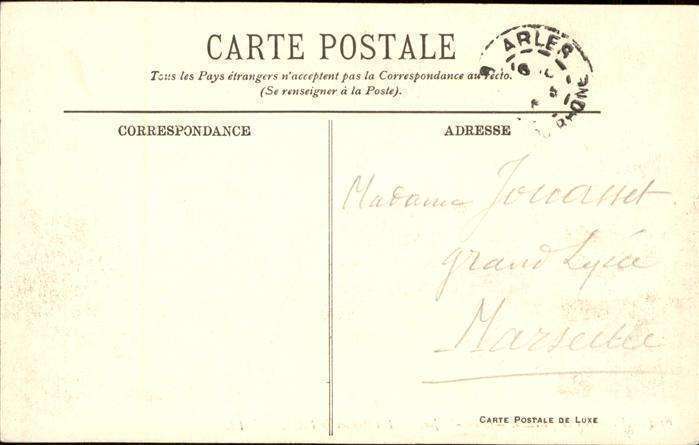 CARTE POSTALE
Tous les Pays étrangers n'acceptent pas la Correspondance au recto.
(Se renseigner à la Poste).
ARLES
RHONE
CORRESPONDANCE
ADRESSE
Madame Jouasset
grand Lycée
Marseille
CARTE POSTALE DE LUXE